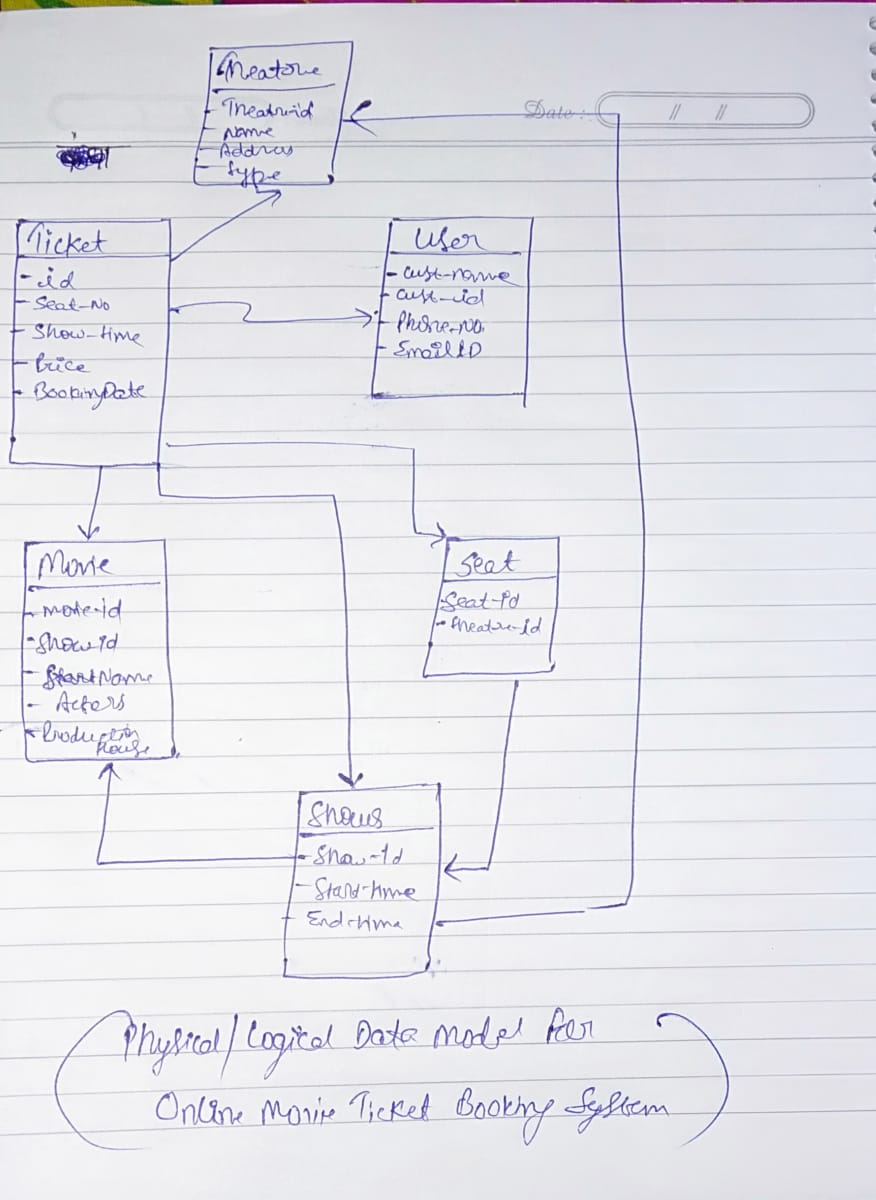 Theatre
- Theatre-id
- Name
- Address
- Type
Date :
// //
Ticket
- id
- Seat-No
- Show-time
- Price
- BookingDate
User
- cust-name
- cust-id
- Phone-No.
- EmailID
Movie
- movie-id
- Show-id
- StartName
- Actors
- Production
House
Seat
Seat-id
- theatre-id
Shows
- Show-Id
- Start-time
- End-time
Physical/Logical Data Model For
Online Movie Ticket Booking System